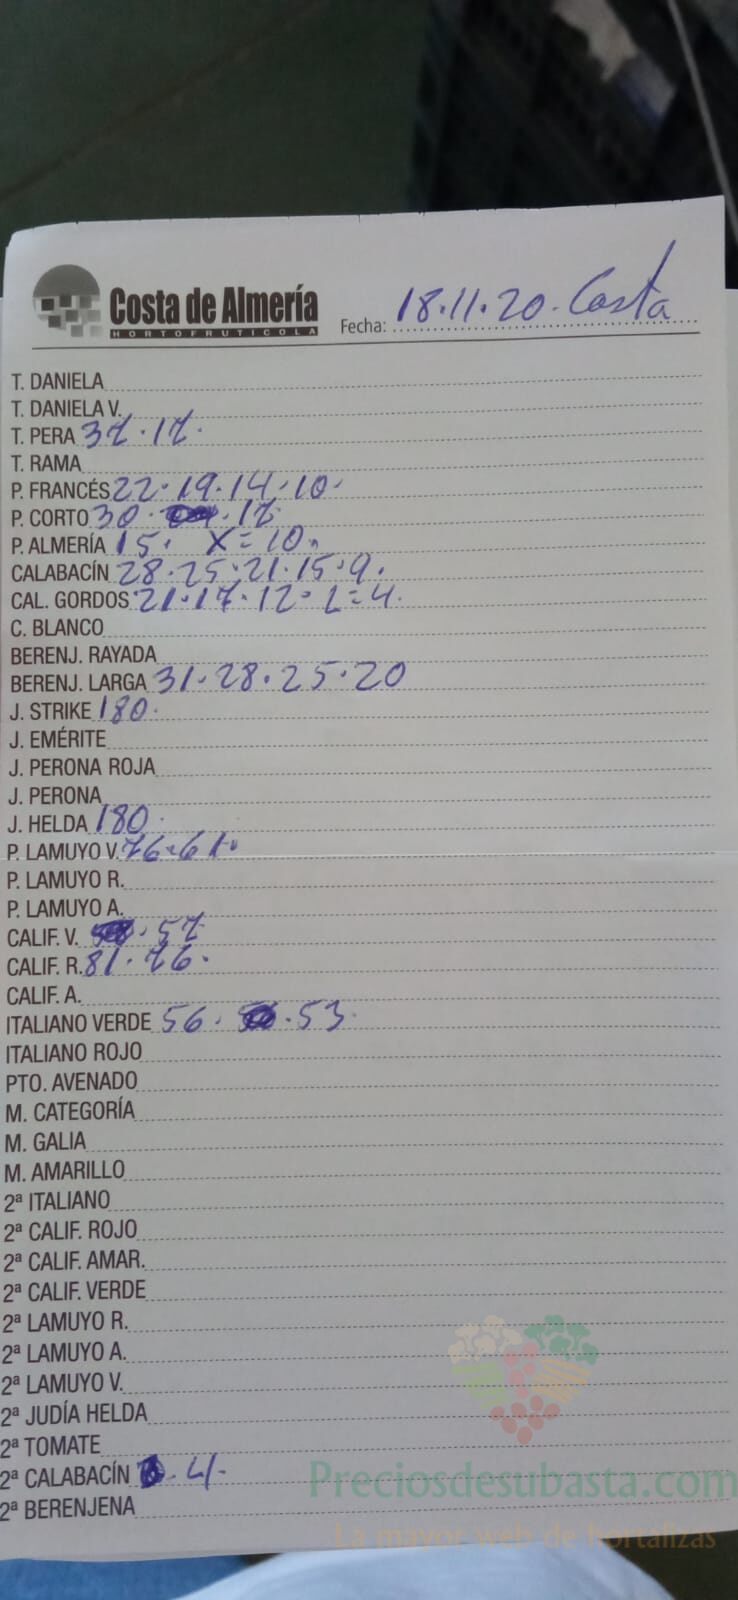 Costa de Almería
HORTOFRUTICOLA
Fecha: 18.11.20. Costa
T. DANIELA
T. DANIELA V.
T. PERA 37.17.
T. RAMA
P. FRANCÉS 22.19.14.10.
P. CORTO 30. .17
P. ALMERÍA 15. X=10.
CALABACÍN 28.25.21.15.9.
CAL. GORDOS 21.17.12. L=4.
C. BLANCO
BERENJ. RAYADA
BERENJ. LARGA 31.28.25.20
J. STRIKE 180.
J. EMÉRITE
J. PERONA ROJA
J. PERONA
J. HELDA 180.
P. LAMUYO V. 76.61.
P. LAMUYO R.
P. LAMUYO A.
CALIF. V. .57
CALIF. R. 81.76.
CALIF. A.
ITALIANO VERDE 56. .53.
ITALIANO ROJO
PTO. AVENADO
M. CATEGORÍA
M. GALIA
M. AMARILLO
2ª ITALIANO
2ª CALIF. ROJO
2ª CALIF. AMAR.
2ª CALIF. VERDE
2ª LAMUYO R.
2ª LAMUYO A.
2ª LAMUYO V.
2ª JUDÍA HELDA
2ª TOMATE
2ª CALABACÍN .4.
2ª BERENJENA
Preciosdesubasta.com
La mayor web de hortalizas